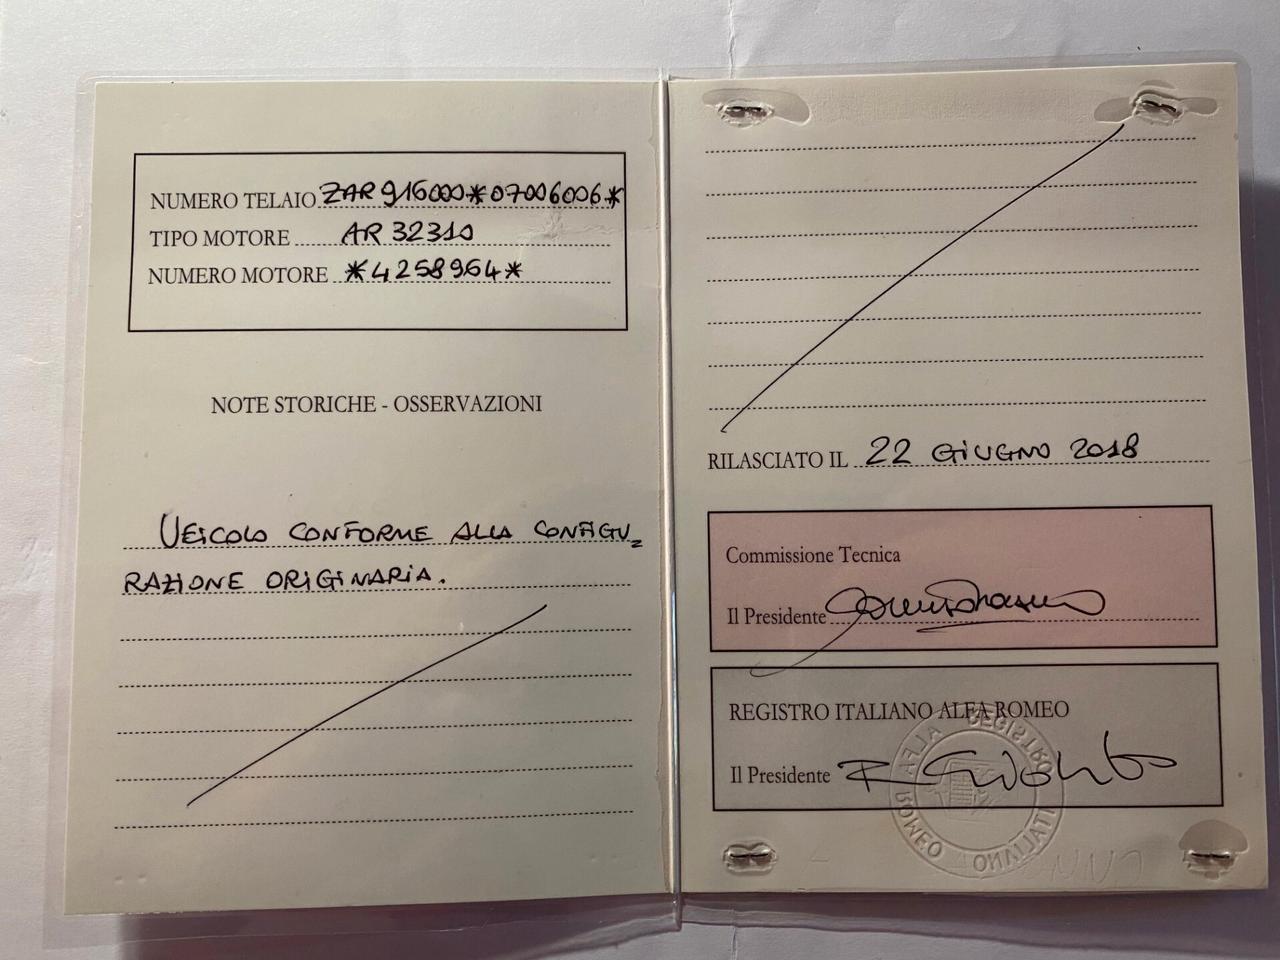 NUMERO TELAIO ZAR916000*07006006*
TIPO MOTORE AR 32310
NUMERO MOTORE *4258964*
NOTE STORICHE - OSSERVAZIONI
VEICOLO CONFORME ALLA CONFIGU
RAZIONE ORIGINARIA.
RILASCIATO IL 22 GIUGNO 2018
Commissione Tecnica
Il Presidente
REGISTRO ITALIANO ALFA ROMEO
Il Presidente
REGISTRO ITALIANO ALFA ROMEO